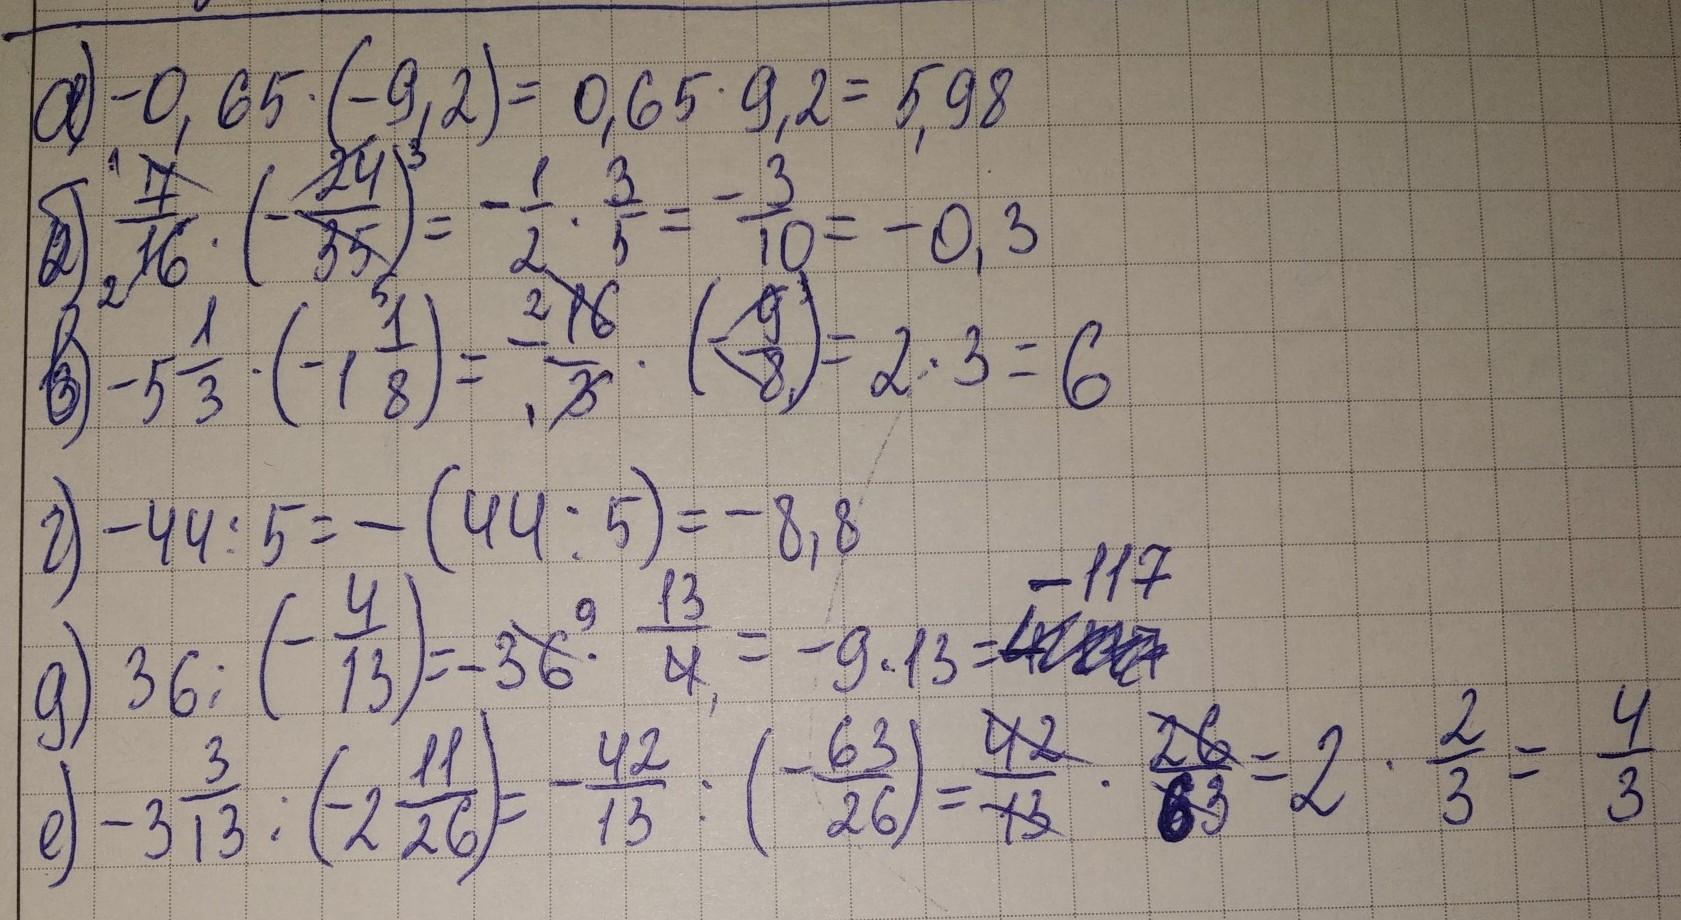 а) -0,65·(-9,2)= 0,65·9,2= 5,98
б) 7/16·(-24/35)= -1/2·3/5= -3/10= -0,3
в) -5 1/3·(-1 1/8)= -16/3·(-9/8)= 2·3=6
г) -44:5=-(44:5)=-8,8
д) 36:(-4/13)=-36·13/4= -9·13= -117
е) -3 3/13:(-2 11/26)= -42/13:(-63/26)= 42/13·26/63=2·2/3= 4/3